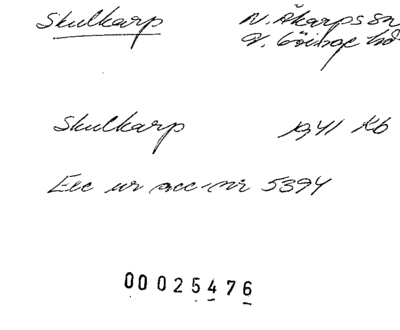 Skulkarp N. Åkarps sn
V. Göinge hd
Skulkarp 1941 Kb
Exc ur acc-nr 5394
00025476